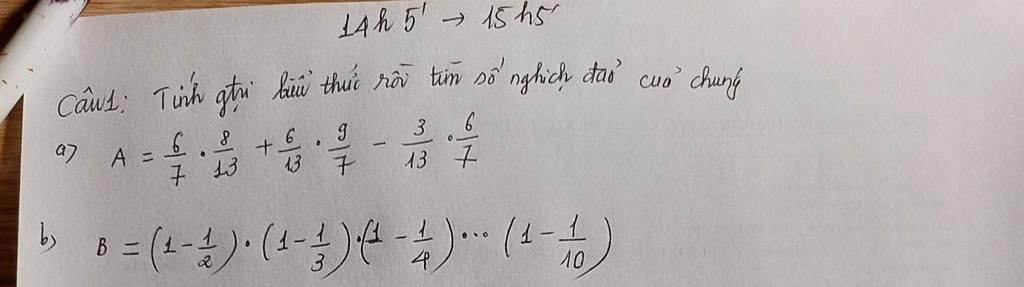 14h 5' → 15h5'
Câu1: Tính gtrị biểu thức rồi tìm số nghịch đảo của chúng
a) A = 6/7 . 8/13 + 6/13 . 9/7 - 3/13 . 6/7
b) B = (1 - 1/2) . (1 - 1/3) . (1 - 1/4) ... (1 - 1/10)